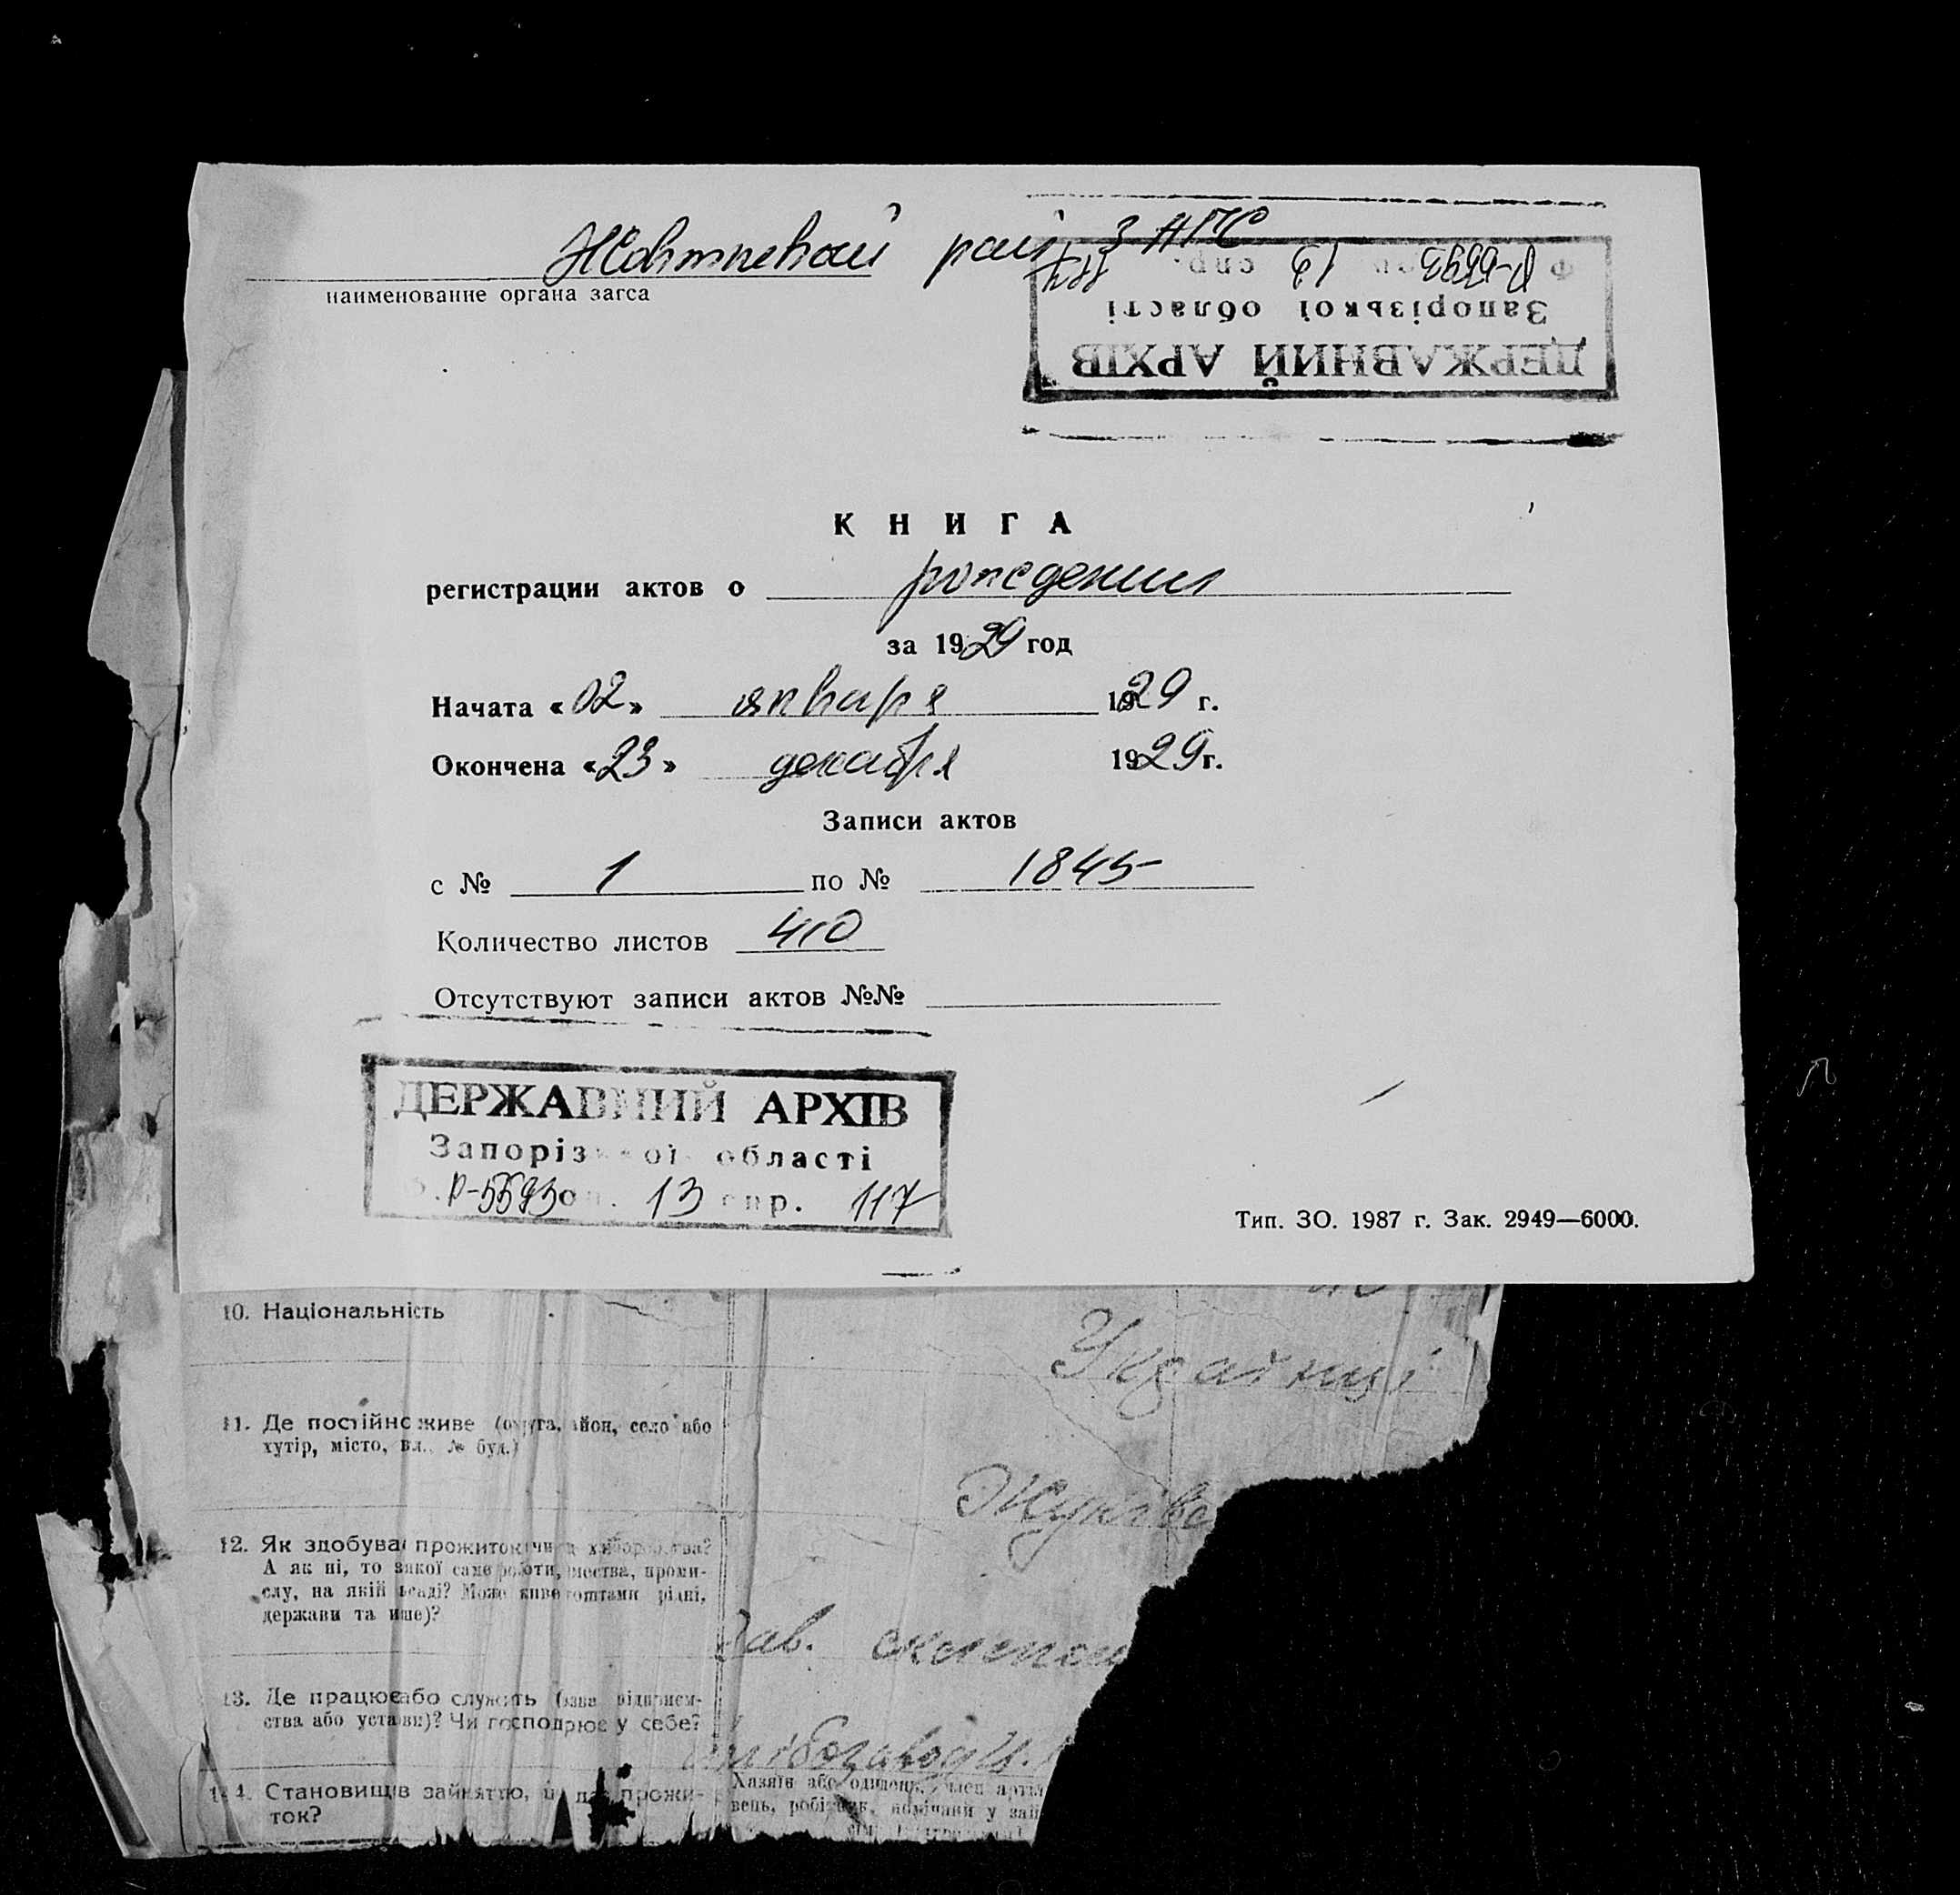 Жовтневый рай ЗАГС
наименование органа загса
ДЕРЖАВНИЙ АРХІВ
Запорізької області
Р-5593 13 спр. 117
КНИГА
регистрации актов о рождении
за 1929 год
Начата «02» января 1929 г.
Окончена «23» декабря 1929 г.
Записи актов
с № 1 по № 1845
Количество листов 410
Отсутствуют записи актов №№
ДЕРЖАВНИЙ АРХІВ
Запорізької області
Р-5593 оп. 13 спр. 117
Тип. ЗО. 1987 г. Зак. 2949—6000.
10. Національність
Українці
11. Де постійно живе (округа, район, село або
хутір, місто, вл. № буд.)
12. Як здобува прожиток чи з хліборобства?
А як ні, то з якої саме роботи, промисло-
слу, на якій посаді? Може живе коштами рідні,
держави та инше)?
Зав.
13. Де працює або служить (назва підприєм-
ства або установи)? Чи господрює у себе?
14. Становище в зайняттю, що дає прожи-
ток?
Хазяїн або одинець, член артіл
вець, робітник, помічник у зай